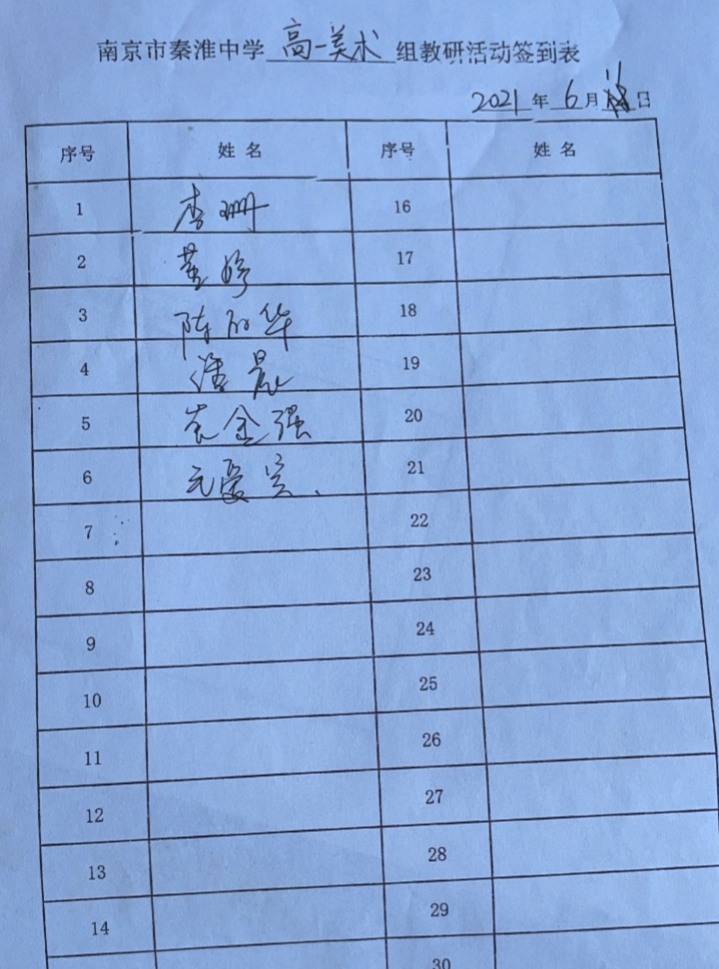 南京市秦淮中学 高一美术 组教研活动签到表
2021 年 6 月 日
序号 姓名 序号 姓名
1 李珊 16
2 黄婷 17
3 陈 华 18
4 晨 19
5 崔金强 20
6 元爱 21
7 22
8 23
9 24
10 25
11 26
12 27
13 28
14 29
30